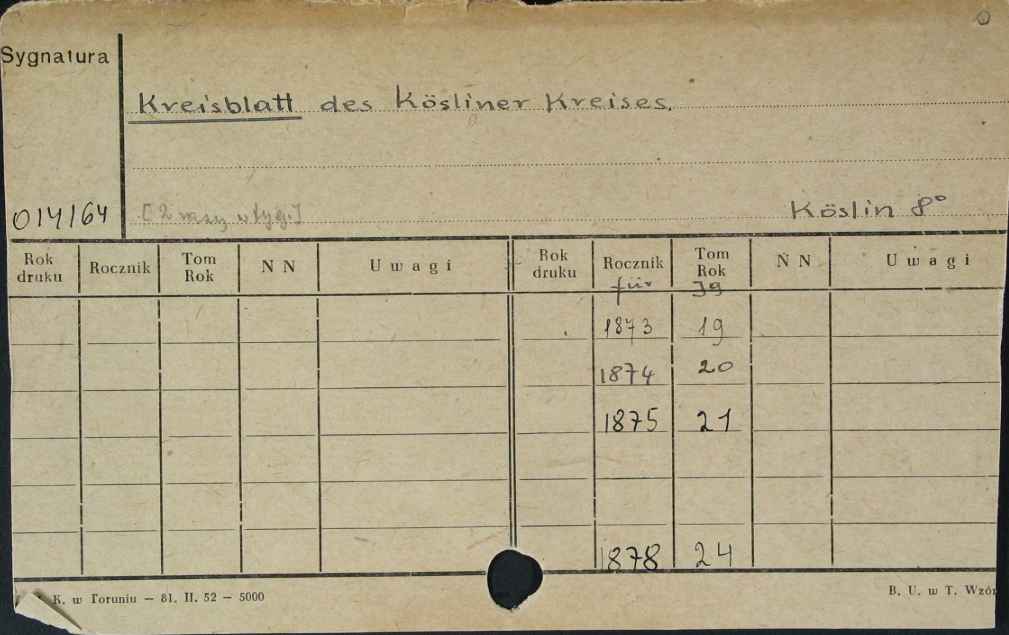 Sygnatura
Kreisblatt des Kösliner Kreises.
014164 [2 razy w tyg.] Köslin 8°
Rok druku Rocznik Tom Rok NN Uwagi Rok druku Rocznik Tom Rok NN Uwagi
für Jg
1873 19
1874 20
1875 21
1878 24
K. w Toruniu — 81. II. 52 — 5000 B. U. w T. Wzór